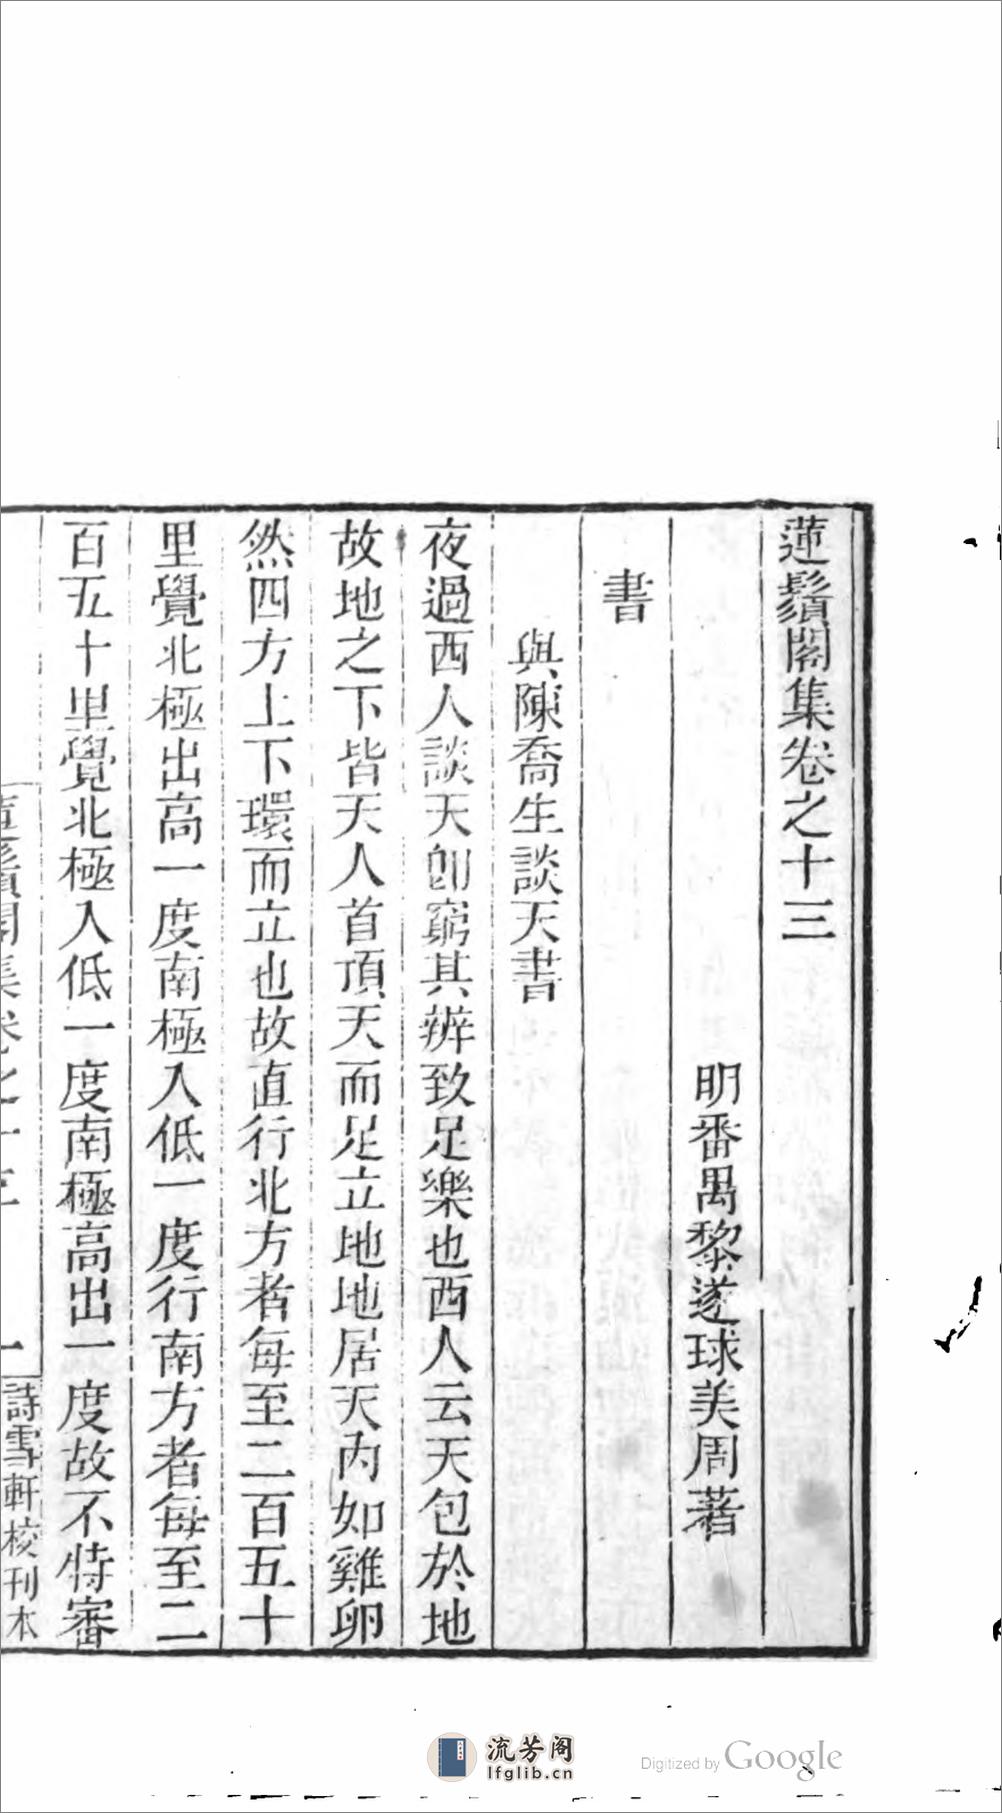 蓮鬚閣集卷之十三
明番禺黎遂球美周著
書
與陳喬生談天書
夜過西人談天卽窮其辨致足樂也西人云天包於地
故地之下皆天人首頂天而足立地地居天內如雞卵
然四方上下環而立也故直行北方者每至二百五十
里覺北極出高一度南極入低一度行南方者每至二
百五十里覺北極入低一度南極高出一度故不特審
蓮鬚閣集卷之十三 一 詩雪軒校刊本
流芳阁
lfglib.cn
Digitized by Google